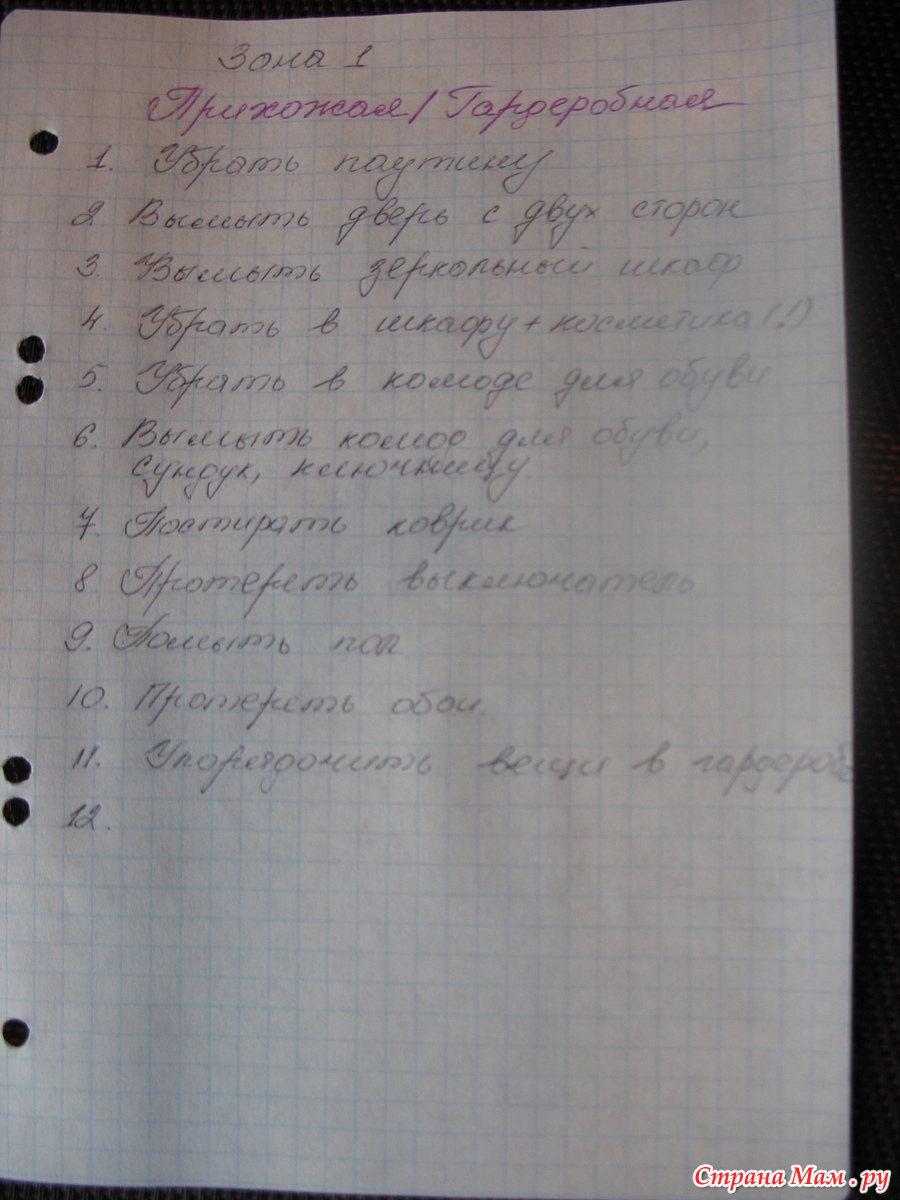 Зона 1
Прихожая/Гардеробная
1. Убрать паутину
2 Вымыть дверь с двух сторон
3. Вымыть зеркальный шкаф
4. Убрать в шкафу + косметика (!)
5. Убрать в комоде для обуви
6. Вымыть комод для обуви,
сундук, ключницу.
7. Постирать коврик
8. Протереть выключатель
9. Помыть пол
10. Протереть обои.
11. Упорядочить вещи в гардеробе
12.
Страна Мам.ру